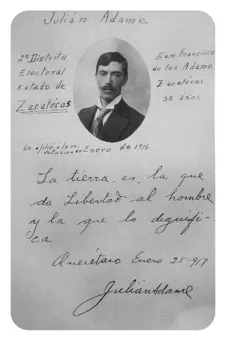 Julián Adame
2º Distrito
Electoral
Estado de
Zacatecas
San Francisco
de los Adame
Zacatecas
35 años
Se afilió a la re
volucion en Enero de 1916
La tierra es la que
da Libertad al hombre
y la que lo dignifi-
ca
Querétaro Enero 25-917
Julián Adame